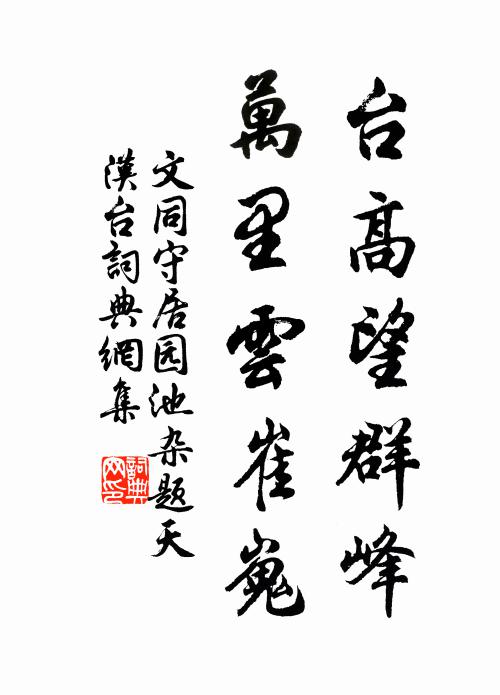 台高望群峰
萬里雲崔嵬
文同守居园池杂题天
漢台詞典網集
詞典網印